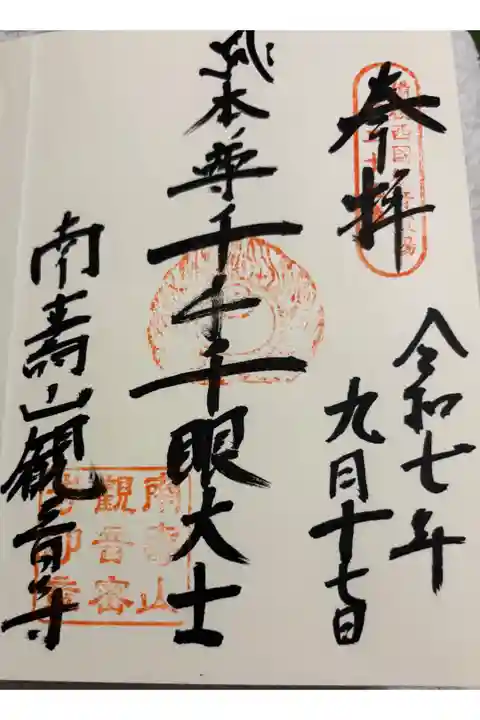 奉拝
令和七年
九月十七日
御本尊千手千眼大士
南壽山観音寺
南壽山
観音密